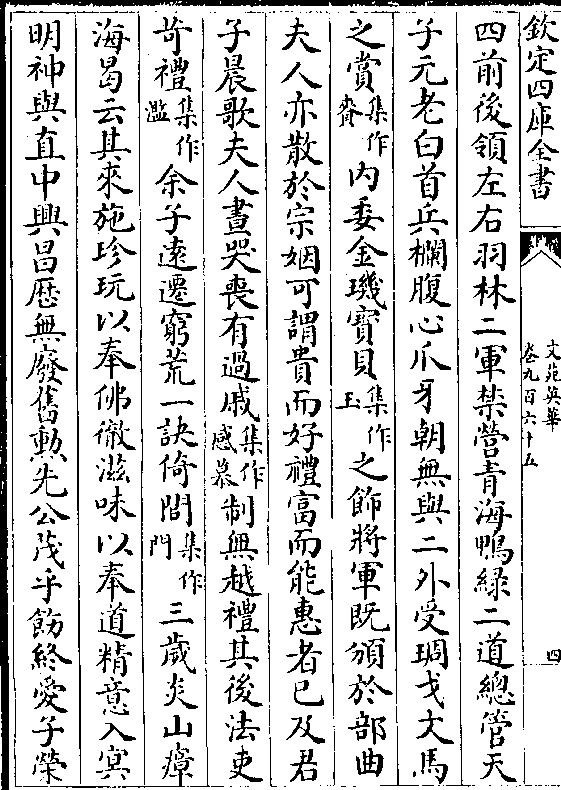 欽定四庫全書
文苑英華
卷九百六十五
四
四前後領左右羽林二軍禁營青海鴨綠二道總管天
子元老白首兵欄腹心爪牙朝無與二外受琱戈大馬
之賞集作賚内委金璣寳貝集作玉之飾將軍既頒於部曲
夫人亦散於宗姻可謂貴而好禮富而能惠者已及君
子晨歌夫人晝哭喪有過戚集作感慕制無越禮其後法吏
苛禮集作濫余子遠遷窮荒一訣倚閭集作門三歲炎山瘴
海曷云其來施珍玩以奉佛徹滋味以奉道精意入㝠
明神與直中興昌厯無廢舊勲先公茂乎飭終愛子榮